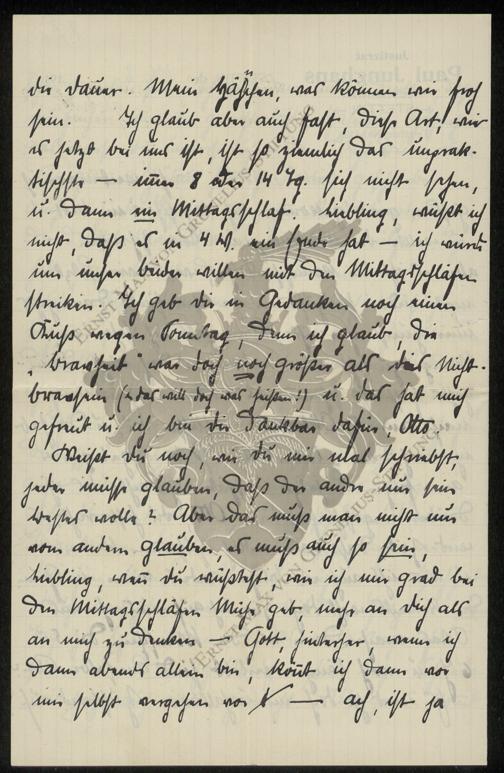 die Dauer. Mein Häschen, was können wir froh
sein. Ich glaub aber auch fast, diese Art, wie
es jetzt bei uns ist, ist so ziemlich das unprak-
tischste — immer 8 oder 14 Tg. sich nicht sehen,
u. dann ein Mittagsschlaf. Liebling, wüßt ich
nicht, daß es in 4 W. ein Ende hat — ich würde
um unser beider willen mit den Mittagsschläfen
streiken. Ich geb dir in Gedanken noch einen
Kuß wegen Sonntag, denn ich glaub, die
"Bravheit" war doch noch größer als das Nicht-
bravsein (u. das will doch was heißen!) u. das hat mich
gefreut u. ich bin dir dankbar dafür, Otto.
Weißt du noch, wie du mir mal schriebst,
jeder müsse glauben, daß der andre nur sein
Bestes wolle? Aber das muß man nicht nur
vom andern glauben, es muß auch so sein,
Liebling, wenn du wüßtest, wie ich mir grad bei
den Mittagsschläfen Mühe geb, mehr an dich als
an mich zu denken — Gott, hinterher, wenn ich
dann abends allein bin, könnt ich dann vor
mir selbst vergehen vor — ach, ist ja
ERNST MAX VON GRUNELIUS-STIFTUNG
ERNST MAX VON GRUNELIUS-STIFTUNG
Justizrat
Paul Junghans